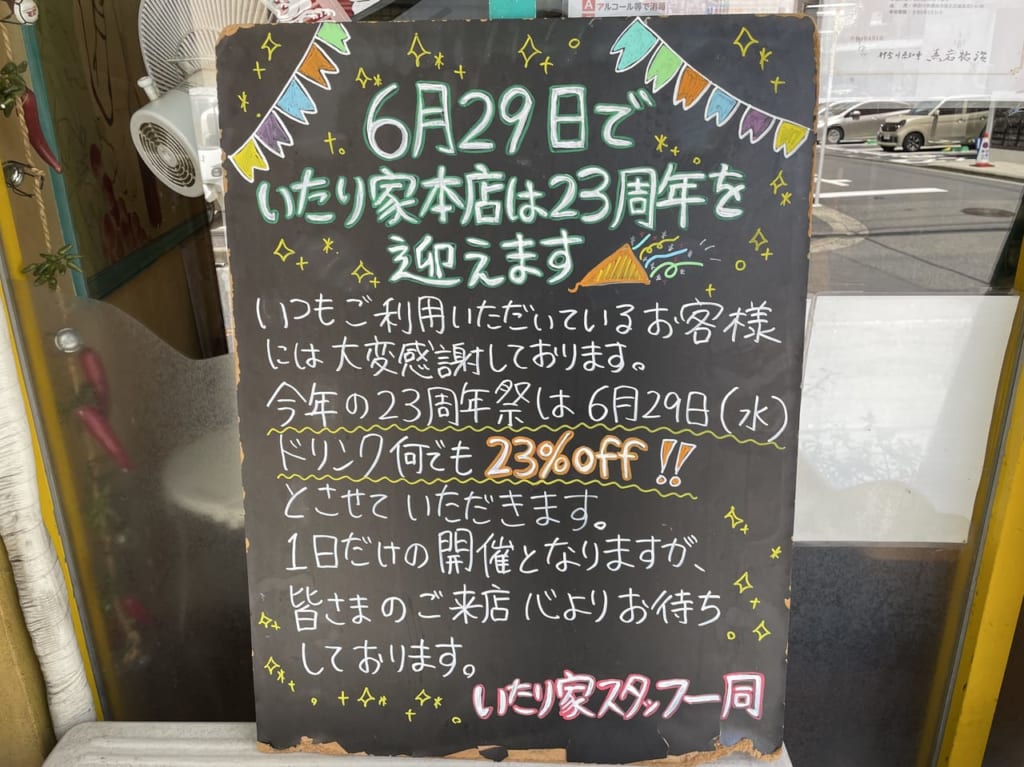 A アルコール等で消毒
6月29日で
いたり家本店は23周年を
迎えます
いつもご利用いただいているお客様
には大変感謝しております。
今年の23周年祭は6月29日(水)
ドリンク何でも 23%off!!
とさせていただきます。
1日だけの開催となりますが、
皆さまのご来店心よりお待ち
しております。
いたり家スタッフ一同